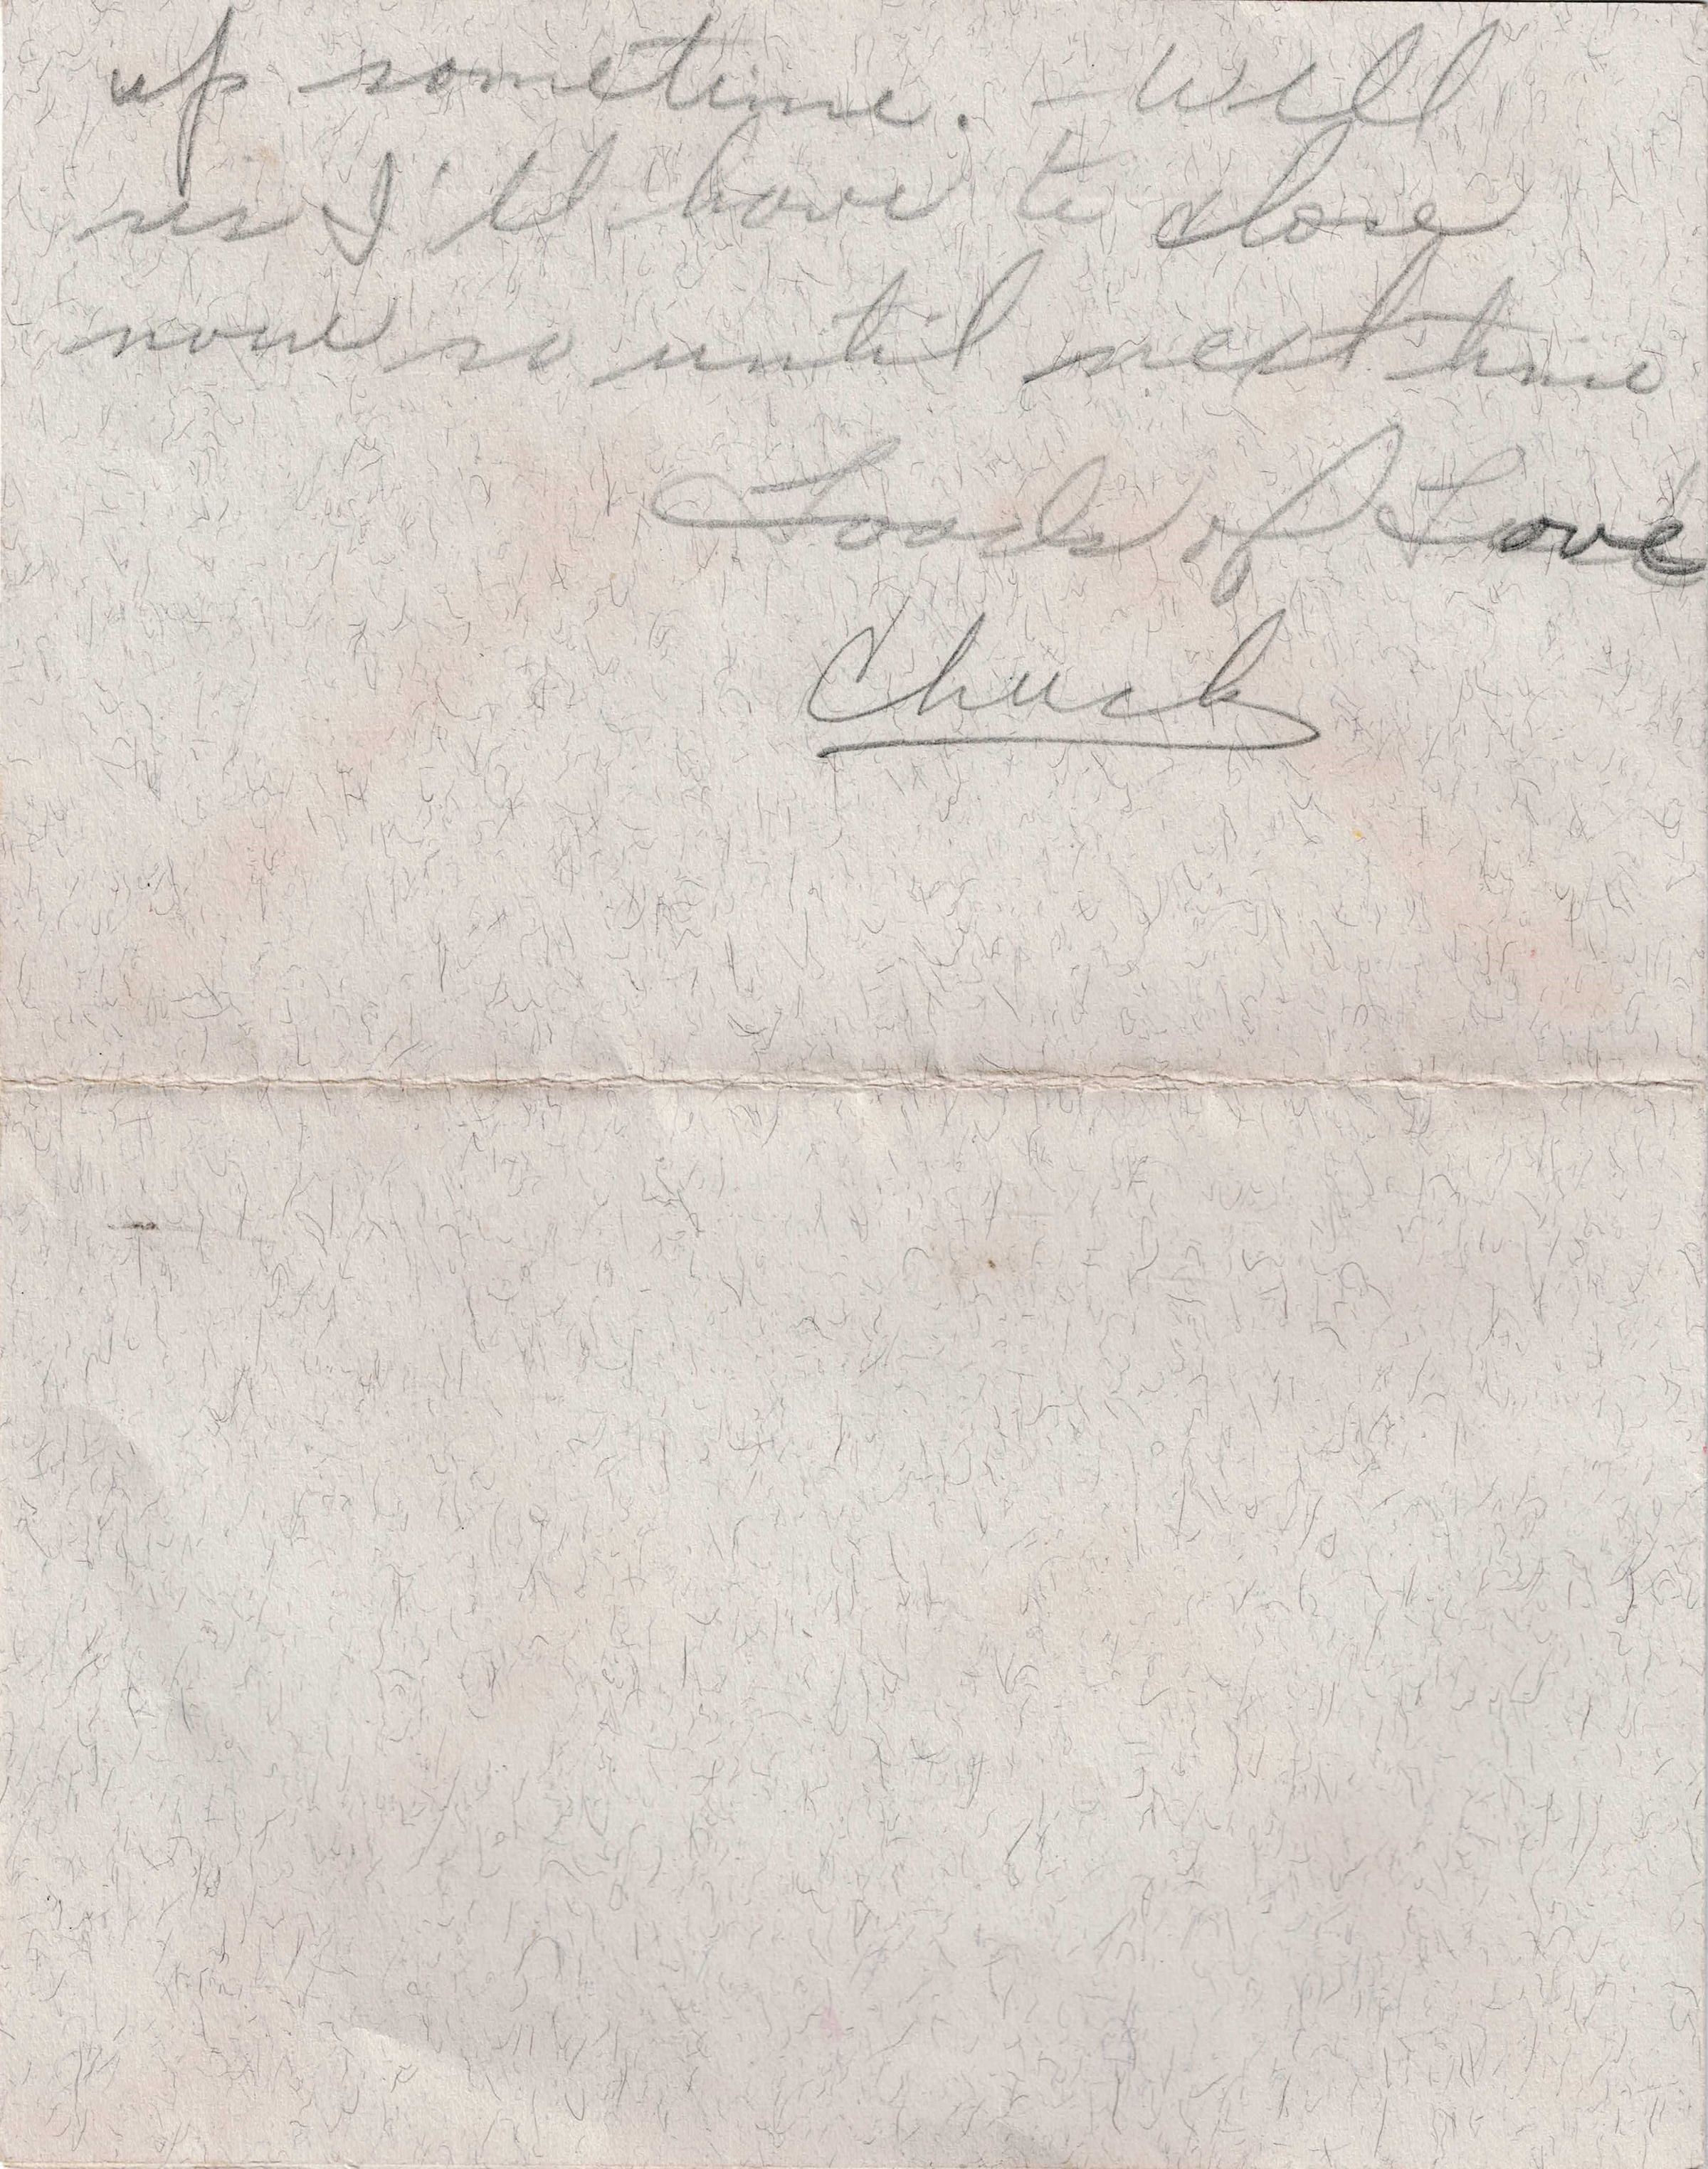 up sometime. Well
sis I'll have to close
now so until next time
Loads of Love
Chuck